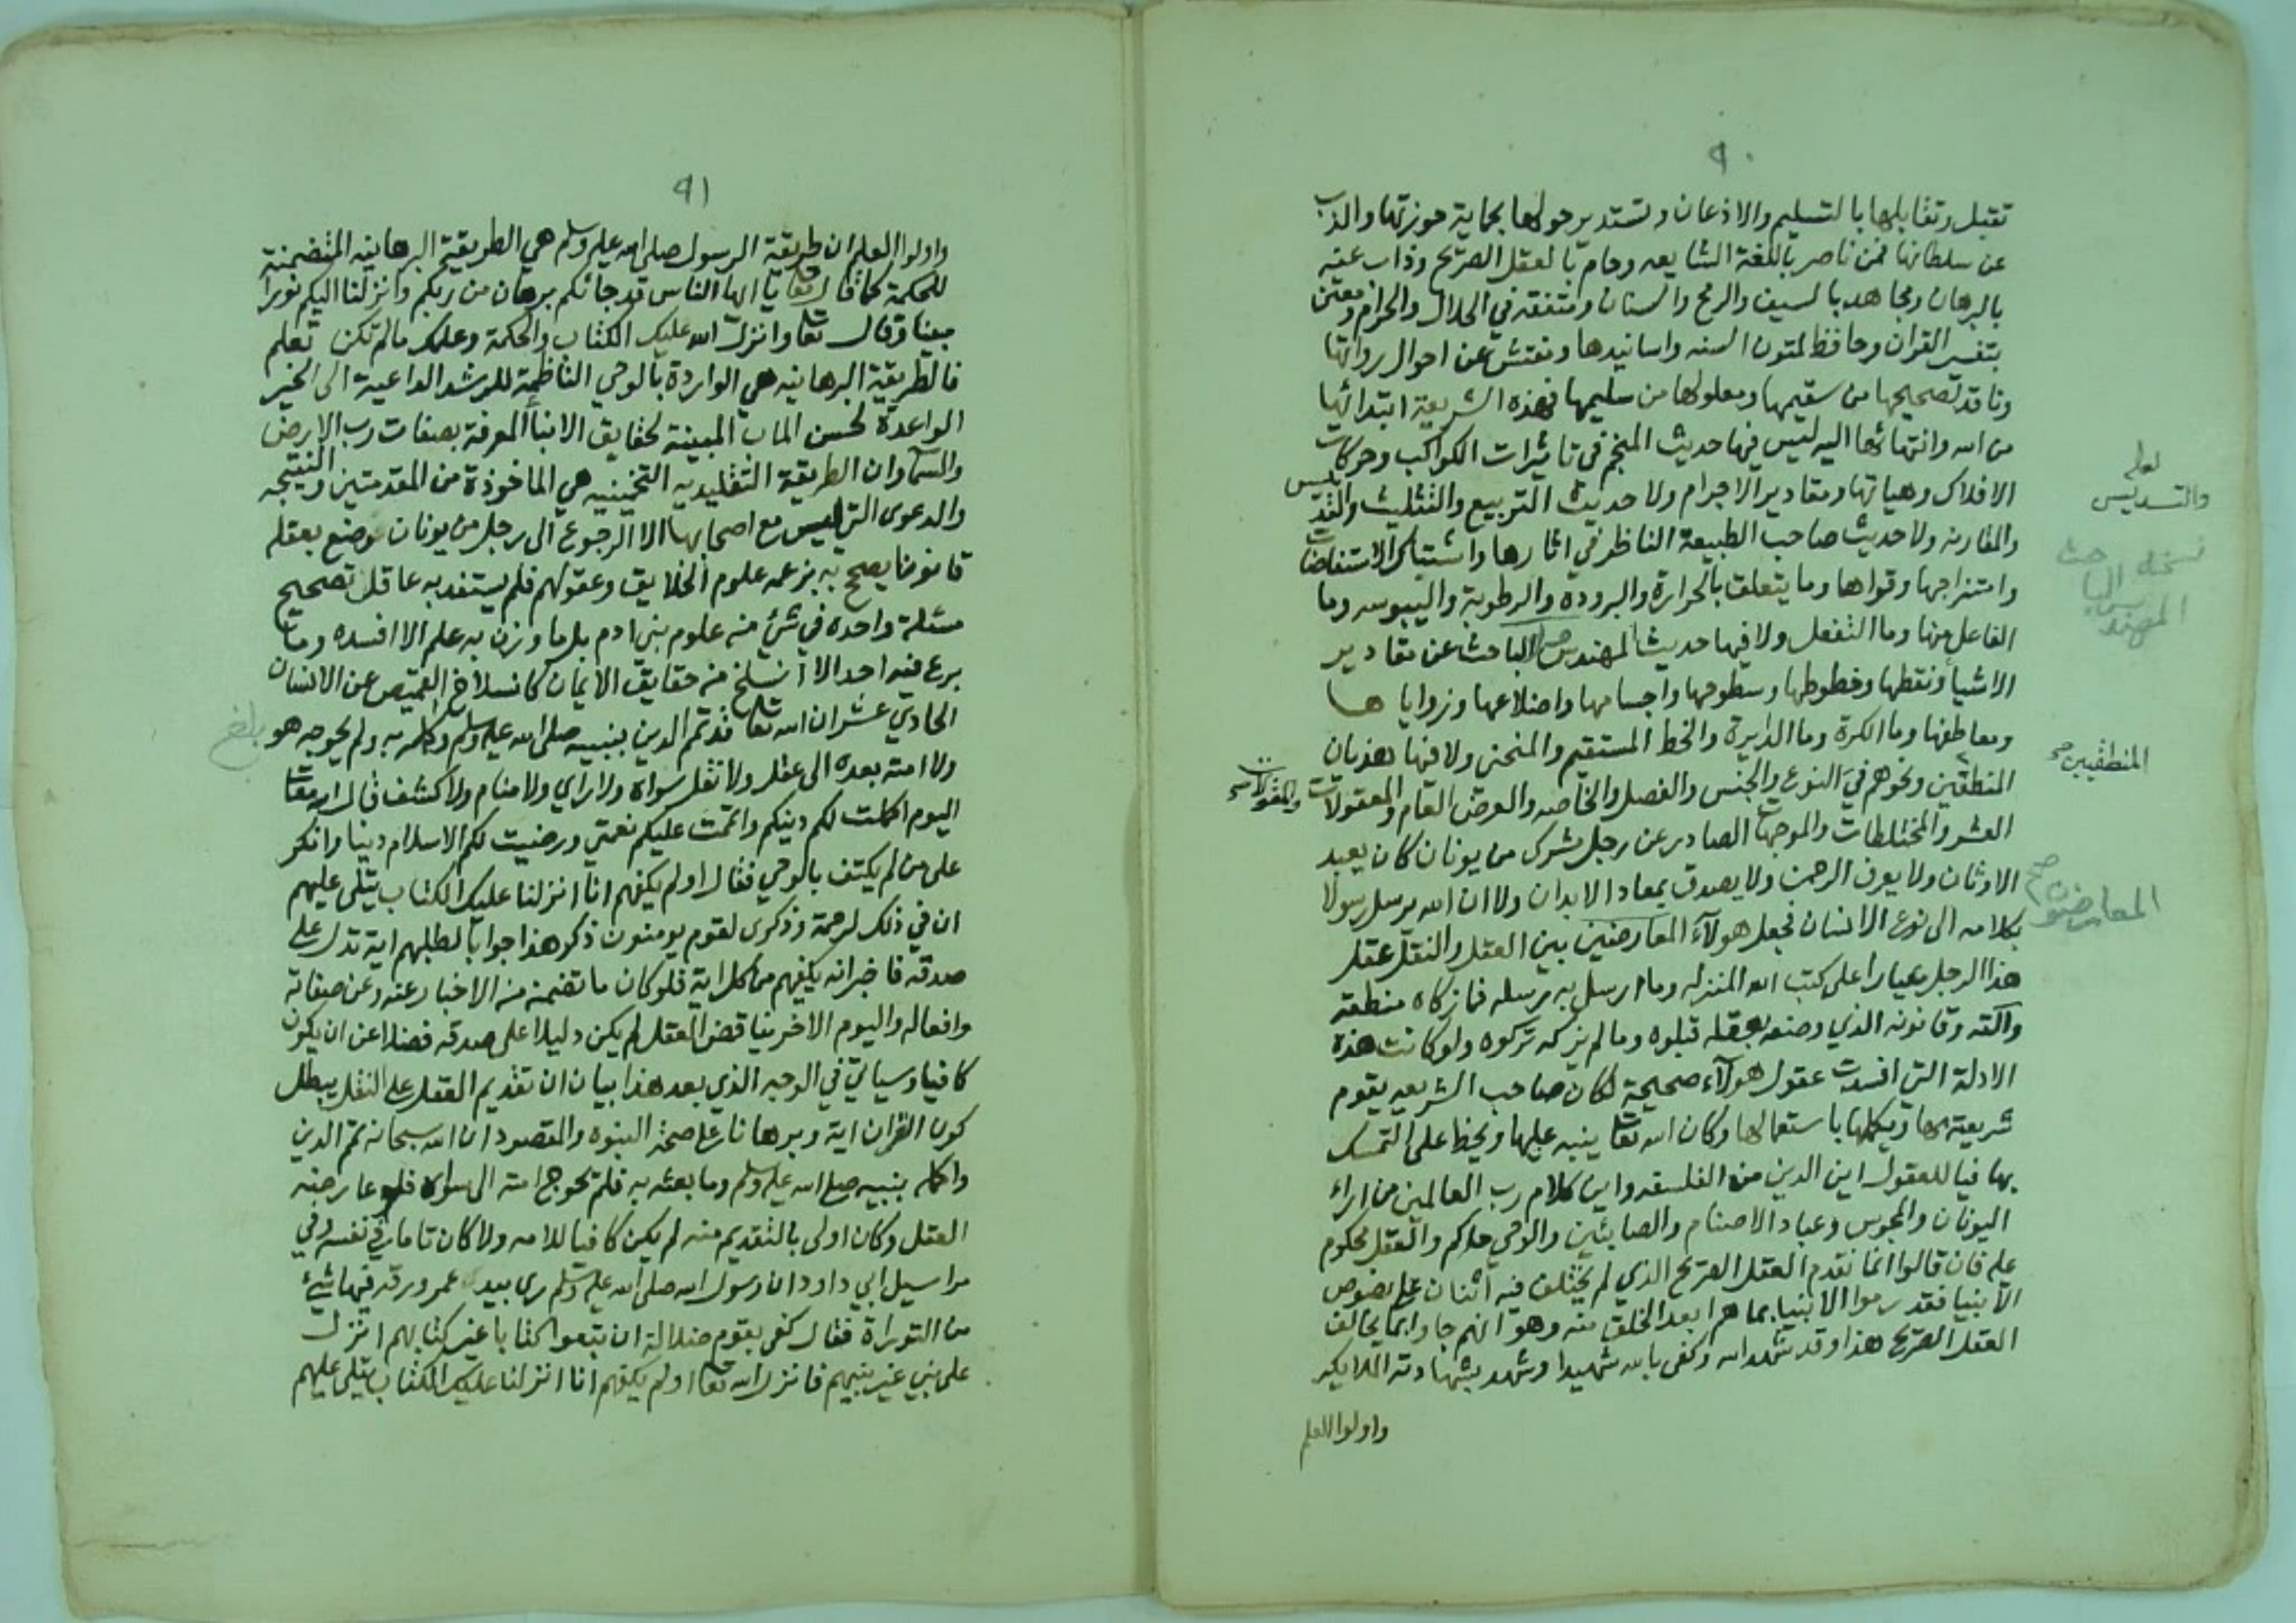 ٩٠
تقبل وتقابلها بالتسليم والاذعان وتستدير حولها بحماية حوزتها والذب
عن سلطانها فمن ناصر باللغة الشايعه وحام بالعقل الصريح وذاب عنه
بالبرهان ومجاهد بالسيف والرمح والسنان ومتفقه في الحلال والحرام ومعتن
بتفسير القران وحافظ لمتون السنه واسانيدها ومفتش عن احوال رواتها
وناقد لصحيحها من سقيمها ومعلولها من سليمها فهذه الشريعة ابتدائها
من الله وانتهائها اليه ليس فيها حديث المنجم في تاثيرات الكواكب وحركات
الافلاك وهياتها ومقادير الاجرام ولا حديث التربيع والتثليث والتسديس
والمقارنه ولا حديث صاحب الطبيعة الناظر في اثارها واشتباك الاستقصات
وامتزاجها وقواها وما يتعلق بالحرارة والبروده والرطوبة واليبوسه وما
الفاعل منها وما النفعل ولا فيها حديث المهندس الباحث عن مقادير
الاشيا ونقطها وخطوطها وسطوحها واجسامها واضلاعها وزوايا ها
ومعاطفها وما الكرة وما الدايرة والخط المستقيم والمنحنى ولا فيها هذيان
المنطقين ونحوهم في النوع والجنس والفصل والخاصه والعرض العام والمعقولات
العشر والمختلطات والموجهات الصادر عن رجل مشرك من يونان كان يعبد
الاوثان ولا يعرف الرحمن ولا يصدق بمعاد الابدان ولا ان الله يرسل رسولا
بكلامه الى نوع الانسان فجعل هولآء المعارضين بين العقل والنقل عقل
هذا الرجل معيارا على كتب الله المنزله وما ارسل به رسله فما زكاه منطقه
وآلته وقانونه الذي وضعه بعقله قبلوه وما لم يزكه تركوه ولو كانت هذه
الادلة التي افسدت عقول هولآء صحيحة لكان صاحب الشريعه يقوم
شريعته بها ويكملها باستعمالها وكان الله تعا ينبه عليها ويحظ على التمسك
بها فيا للعقول اين الدين من الفلسفه واين كلام رب العالمين من اراء
اليونان والمجوس وعباد الاصنام والصابئين والوحي حاكم والعقل محكوم
عليه فان قالوا انما نقدم العقل الصريح الذي لم يختلف فيه اثنان على نصوص
الانبيا فقد رموا الانبيا بما هم ابعد الخلق منه وهو انهم جاوا بما يخالف
العقل الصريح هذا وقد شهد الله وكفى بالله شهيدا وشهد بشهادته الملايكه
واولوا العلم
لعله
والتسديس
نسخه الباحث
المهندس
المنطقيين صح
والمقولات صح
المعارضون صح
٩١
واولوا العلم ان طريقة الرسول صلى الله عليه وسلم هي الطريقة البرهانيه المتضمنة
للحكمة كما قال تعا يا ايها الناس قد جائكم برهان من ربكم وانزلنا اليكم نورا
مبينا وقال تعا وانزل الله عليك الكتاب والحكمة وعلمك مالم تكن تعلم
فالطريقة البرهانيه هي الواردة بالوحي الناظمة للرشد الداعية الى الخير
الواعدة لحسن الماب المبينة لحقايق الانبا المعرفة بصفات رب الارض
والسما وان الطريقة التقليديه التخمينيه هي الماخوذة من المقدمتين والنتيجه
والدعوى التي ليس مع اصحابها الا الرجوع الى رجل من يونان وضع بعقله
قانونا يصحح به بزعمه علوم الخلايق وعقولهم فلم يستفد به عاقل تصحيح
مسئلة واحده في شئ من علوم بني ادم بل ما وزن به علم الا افسده وما
برع فيه احد الا انسلخ من حقايق الايمان كانسلاخ القميص عن الانسان
الحادي عشر ان الله تعا قد تمم الدين بنبيه صلى الله عليه وسلم وكمله به ولم يحوجه هو
ولا امته بعده الى عقل ولا نقل سواه ولا راي ولا منام ولا كشف قال الله تعا
اليوم اكملت لكم دينكم واتممت عليكم نعمتي ورضيت لكم الاسلام دينا وانكر
على من لم يكتف بالوحي فقال اولم يكفهم انا انزلنا عليك الكتاب يتلى عليهم
ان في ذلك لرحمة وذكرى لقوم يومنون ذكر هذا جوابا لطلبهم اية تدل على
صدقه فاخبر انه يكفيهم من كل اية فلو كان ما تضمنه من الاخبار عنه وعن صفاته
وافعاله واليوم الاخر يناقض العقل لم يكن دليلا على صدقه فضلا عن ان يكون
كافيا وسياتي في الوجه الذي بعد هذا بيان ان تقديم العقل على النقل يبطل
كون القران اية وبرهانا على صحة النبوه والمقصود ان الله سبحانه تمم الدين
واكمله بنبيه صلى الله عليه وسلم وما بعثه به فلم تحوج امته الى سواه فلو عارضه
العقل وكان اولى بالتقديم منه لم يكن كافيا للامه ولا كان تاما في نفسه وفي
مراسيل ابي داود ان رسول الله صلى الله عليه وسلم رى بيد عمر ورقه فيها شئ
من التوراة فقال كفى بقوم ضلالة ان يتبعوا كتابا غير كتابهم انزل
على نبي غير نبيهم فانزل الله تعا اولم يكفهم انا انزلنا عليك الكتاب يتلى عليهم
بلغ